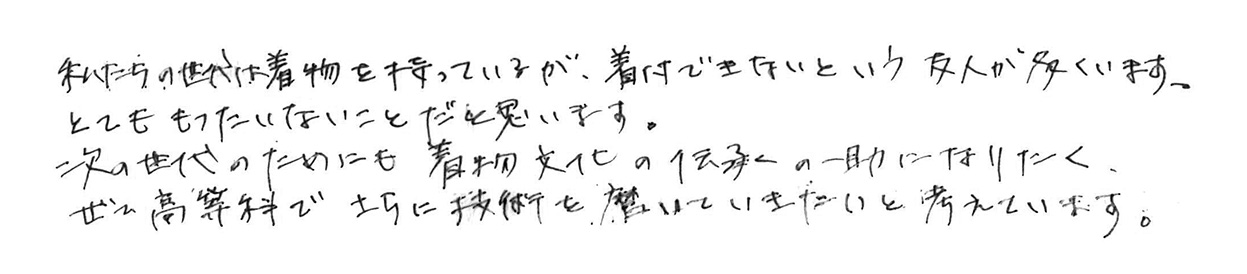 私たちの世代は着物を持っているが、着付できないという友人が多くいます。
とてももったいないことだと思います。
次の世代のためにも着物文化の伝承の一助になりたく、
ぜひ高等科でさらに技術を磨いていきたいと考えています。